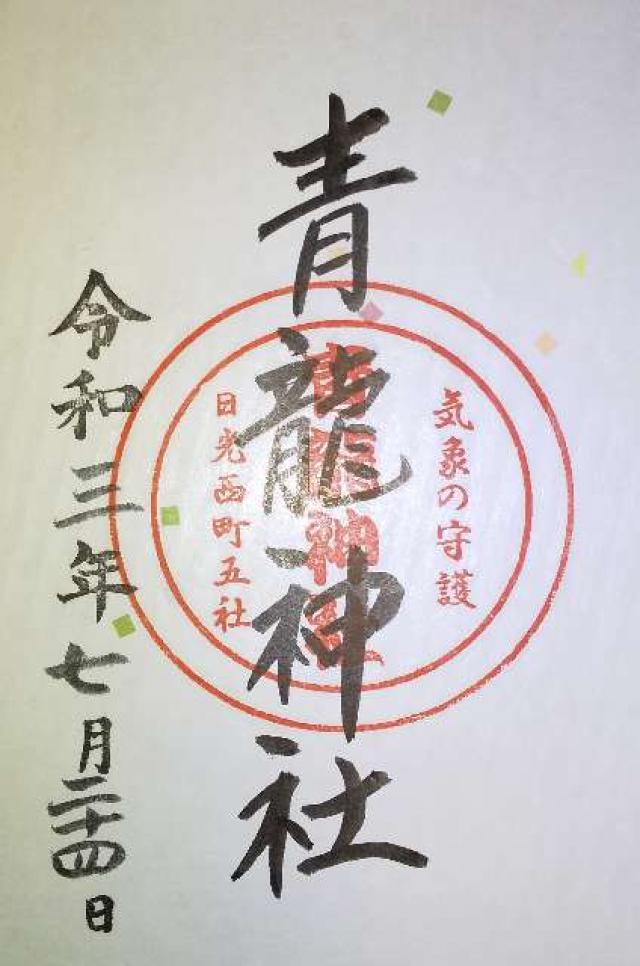 気象の守護
青龍神社
青龍神社
日光西町五社
令和三年七月二十四日